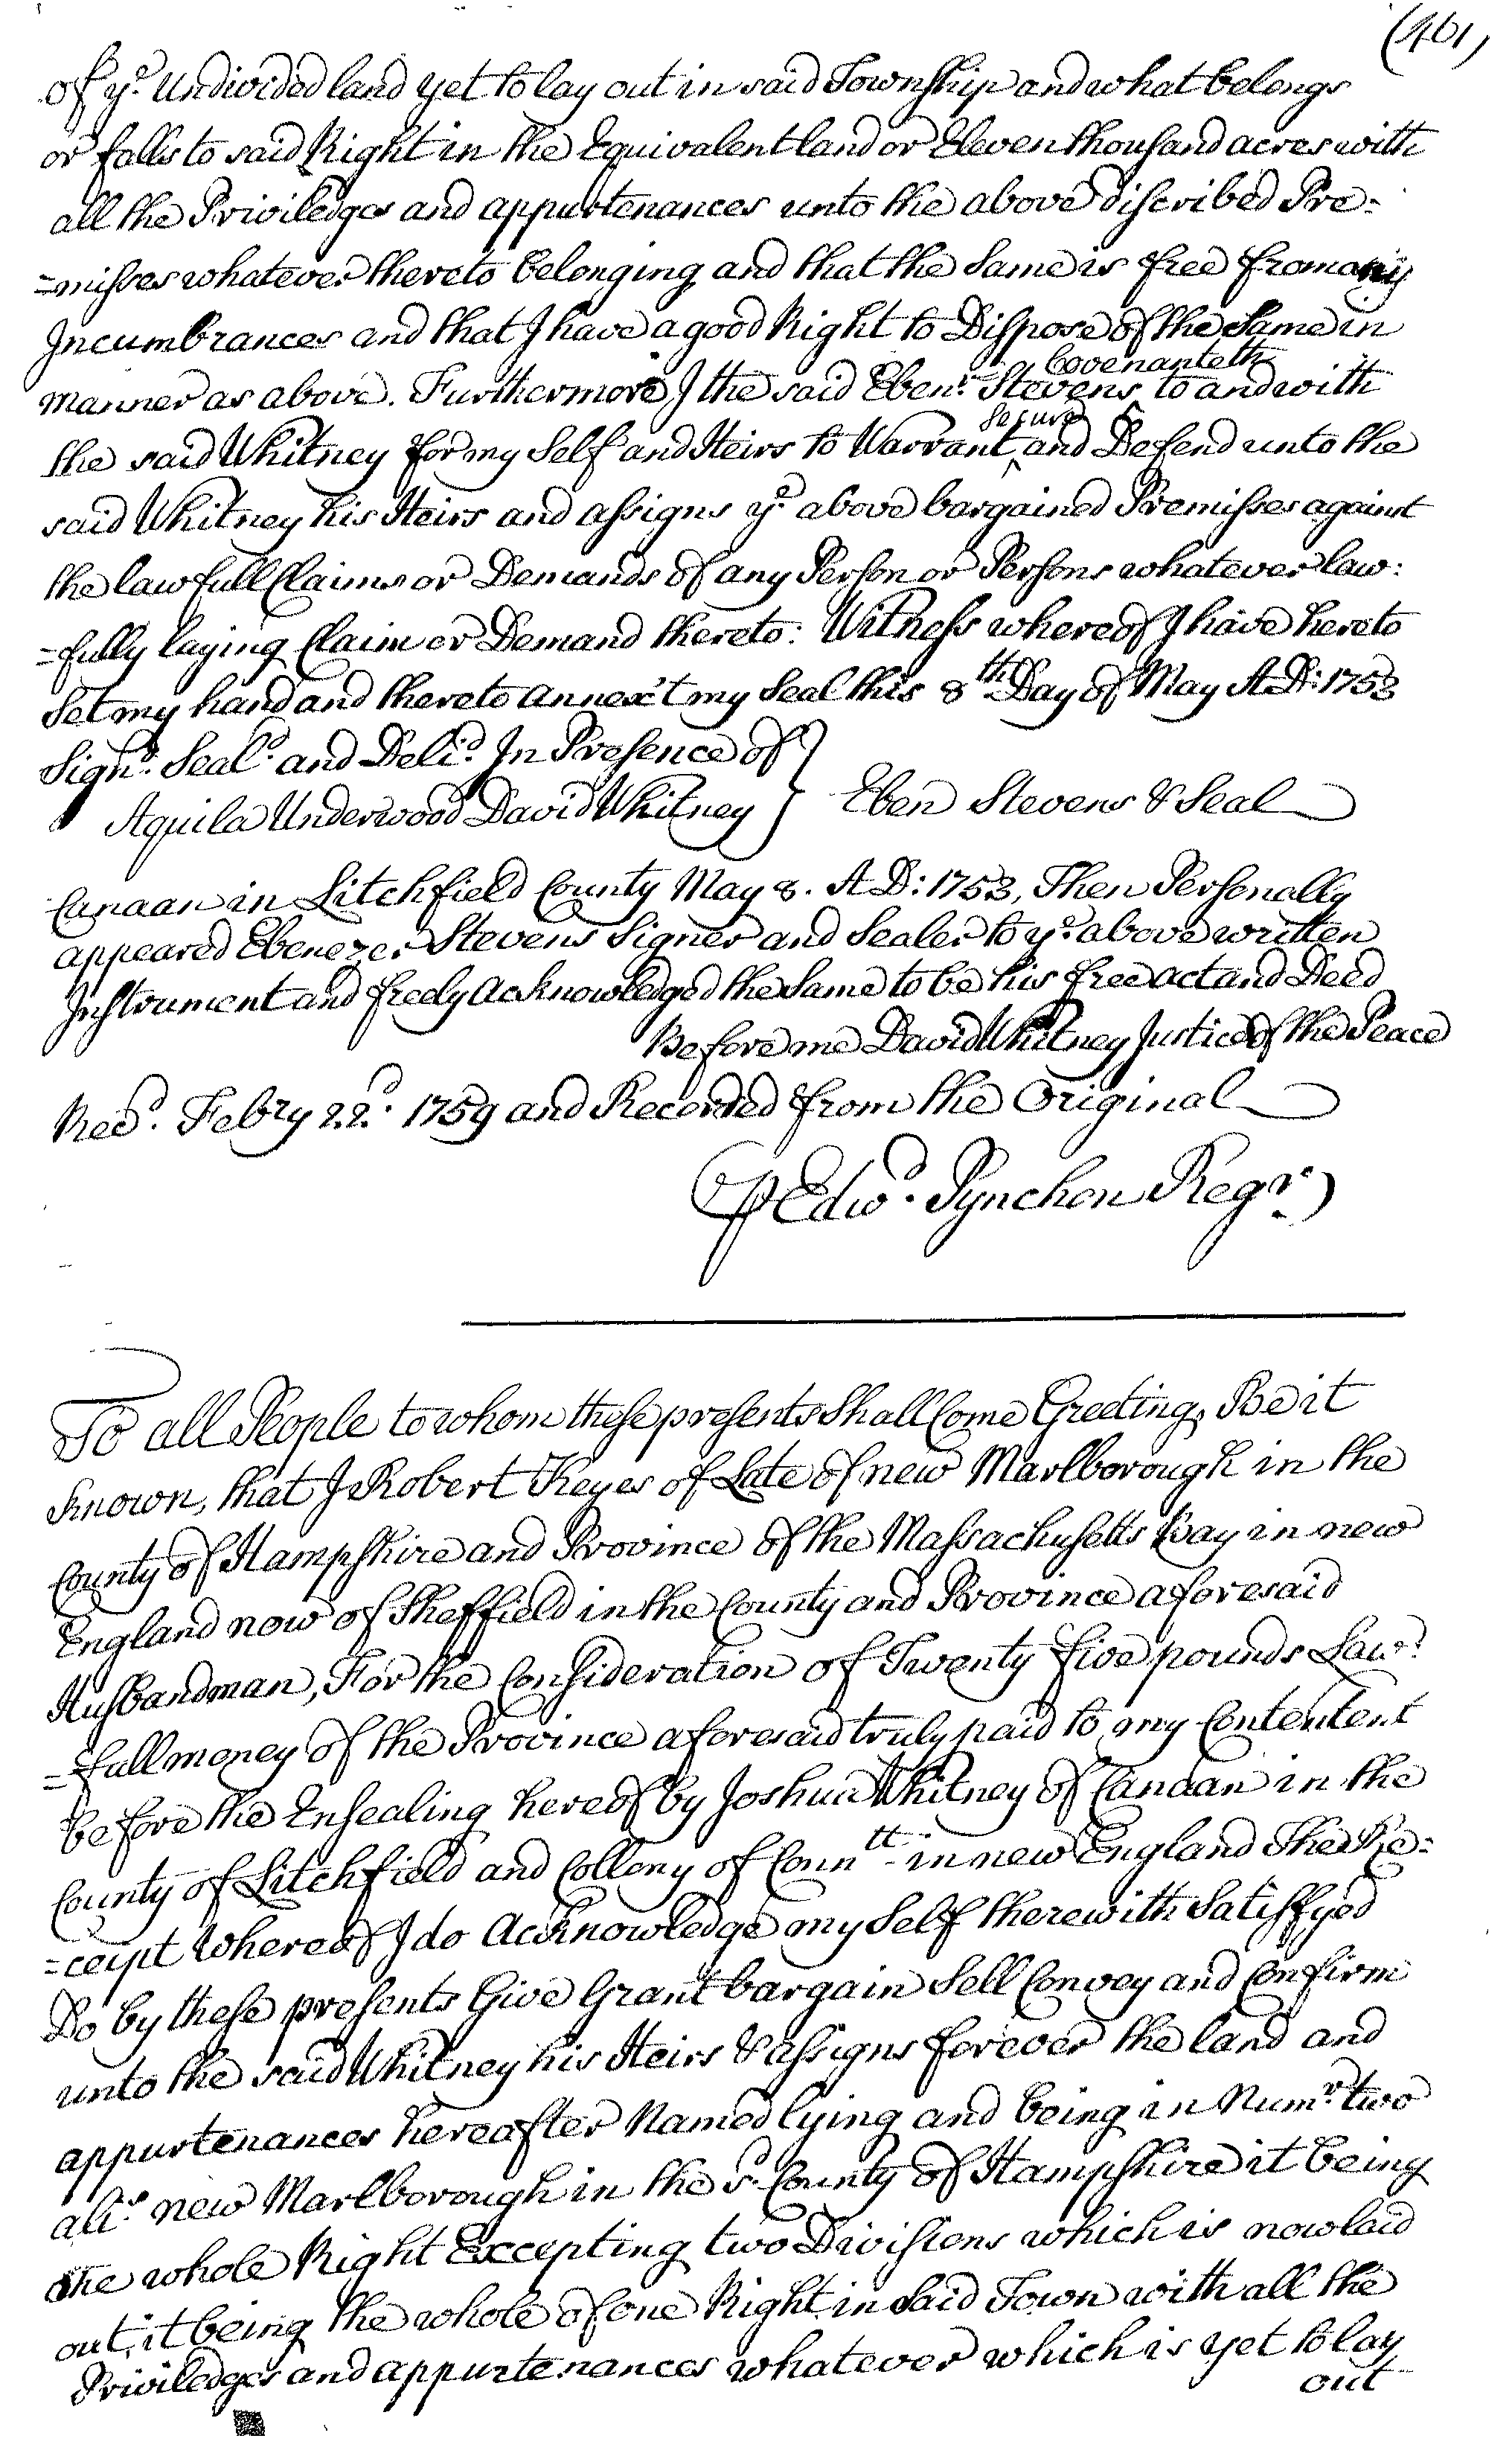 (461)
of ye. Undivided land yet to lay out in said Township and what belongs
or falls to said Right in the Equivalent land or Eleven thousand acres with
all the Priviledges and appurtenances unto the above discribed Pre=
=misses whatever thereto belonging and that the Same is free from any
Incumbrances and that I have a good Right to Dispose of the Same in
manner as above. Furthermore I the said Ebenr. Stevens Covenanteth to and with
the said Whitney for my Self and Heirs to Warrant Secure and Defend unto the
said Whitney his Heirs and assigns ye. above bargained Premisses against
the lawfull Claims or Demands of any Person or Persons whatever law:
=fully laying Claim or Demand thereto: Witness whereof I have hereto
Set my hand and thereto annex't my Seal this 8th Day of May A:D: 1753
Signd. Seald. and Delid. In Presence of
Aquila Underwood David Whitney } Eben Stevens & Seal
Canaan in Litchfield County May 8. A:D: 1753, Then Personally
appeared Ebenezer Stevens Signer and Sealer to ye. above written
Instrument and freely Acknowledged the Same to be his free act and Deed
Before me David Whitney Justice of the Peace
Recd. Febry 22d. 1759 and Recorded from the Original
⅌ Edwd. Pynchon Regr.
To all People to whom these presents Shall Come Greeting, Be it
Known, that I Robert Keyes of Late of new Marlborough in the
County of Hampshire and Province of the Massachusetts Bay in new
England now of Sheffield in the County and Province aforesaid
Husbandman, For the Consideration of Twenty five pounds Law:
=full money of the Province aforesaid truly paid to my Contentent
before the Ensealing hereof by Joshua Whitney of Canaan in the
County of Litchfield and Collony of Conntt. in new England The Re=
=ceipt Whereof I do Acknowledge my Self therewith Satisfyed
Do by these presents Give Grant bargain Sell Convey and Confirm
unto the said Whitney his Heirs & assigns forever the land and
appurtenances hereafter Named lying and being in Numr. two
alis. new Marlborough in the sd. County of Hampshire it being
the whole Right Excepting two Divisions which is now laid
out, it being the whole of one Right in Said Town with all the
Priviledges and appurtenances whatever which is yet to lay
out